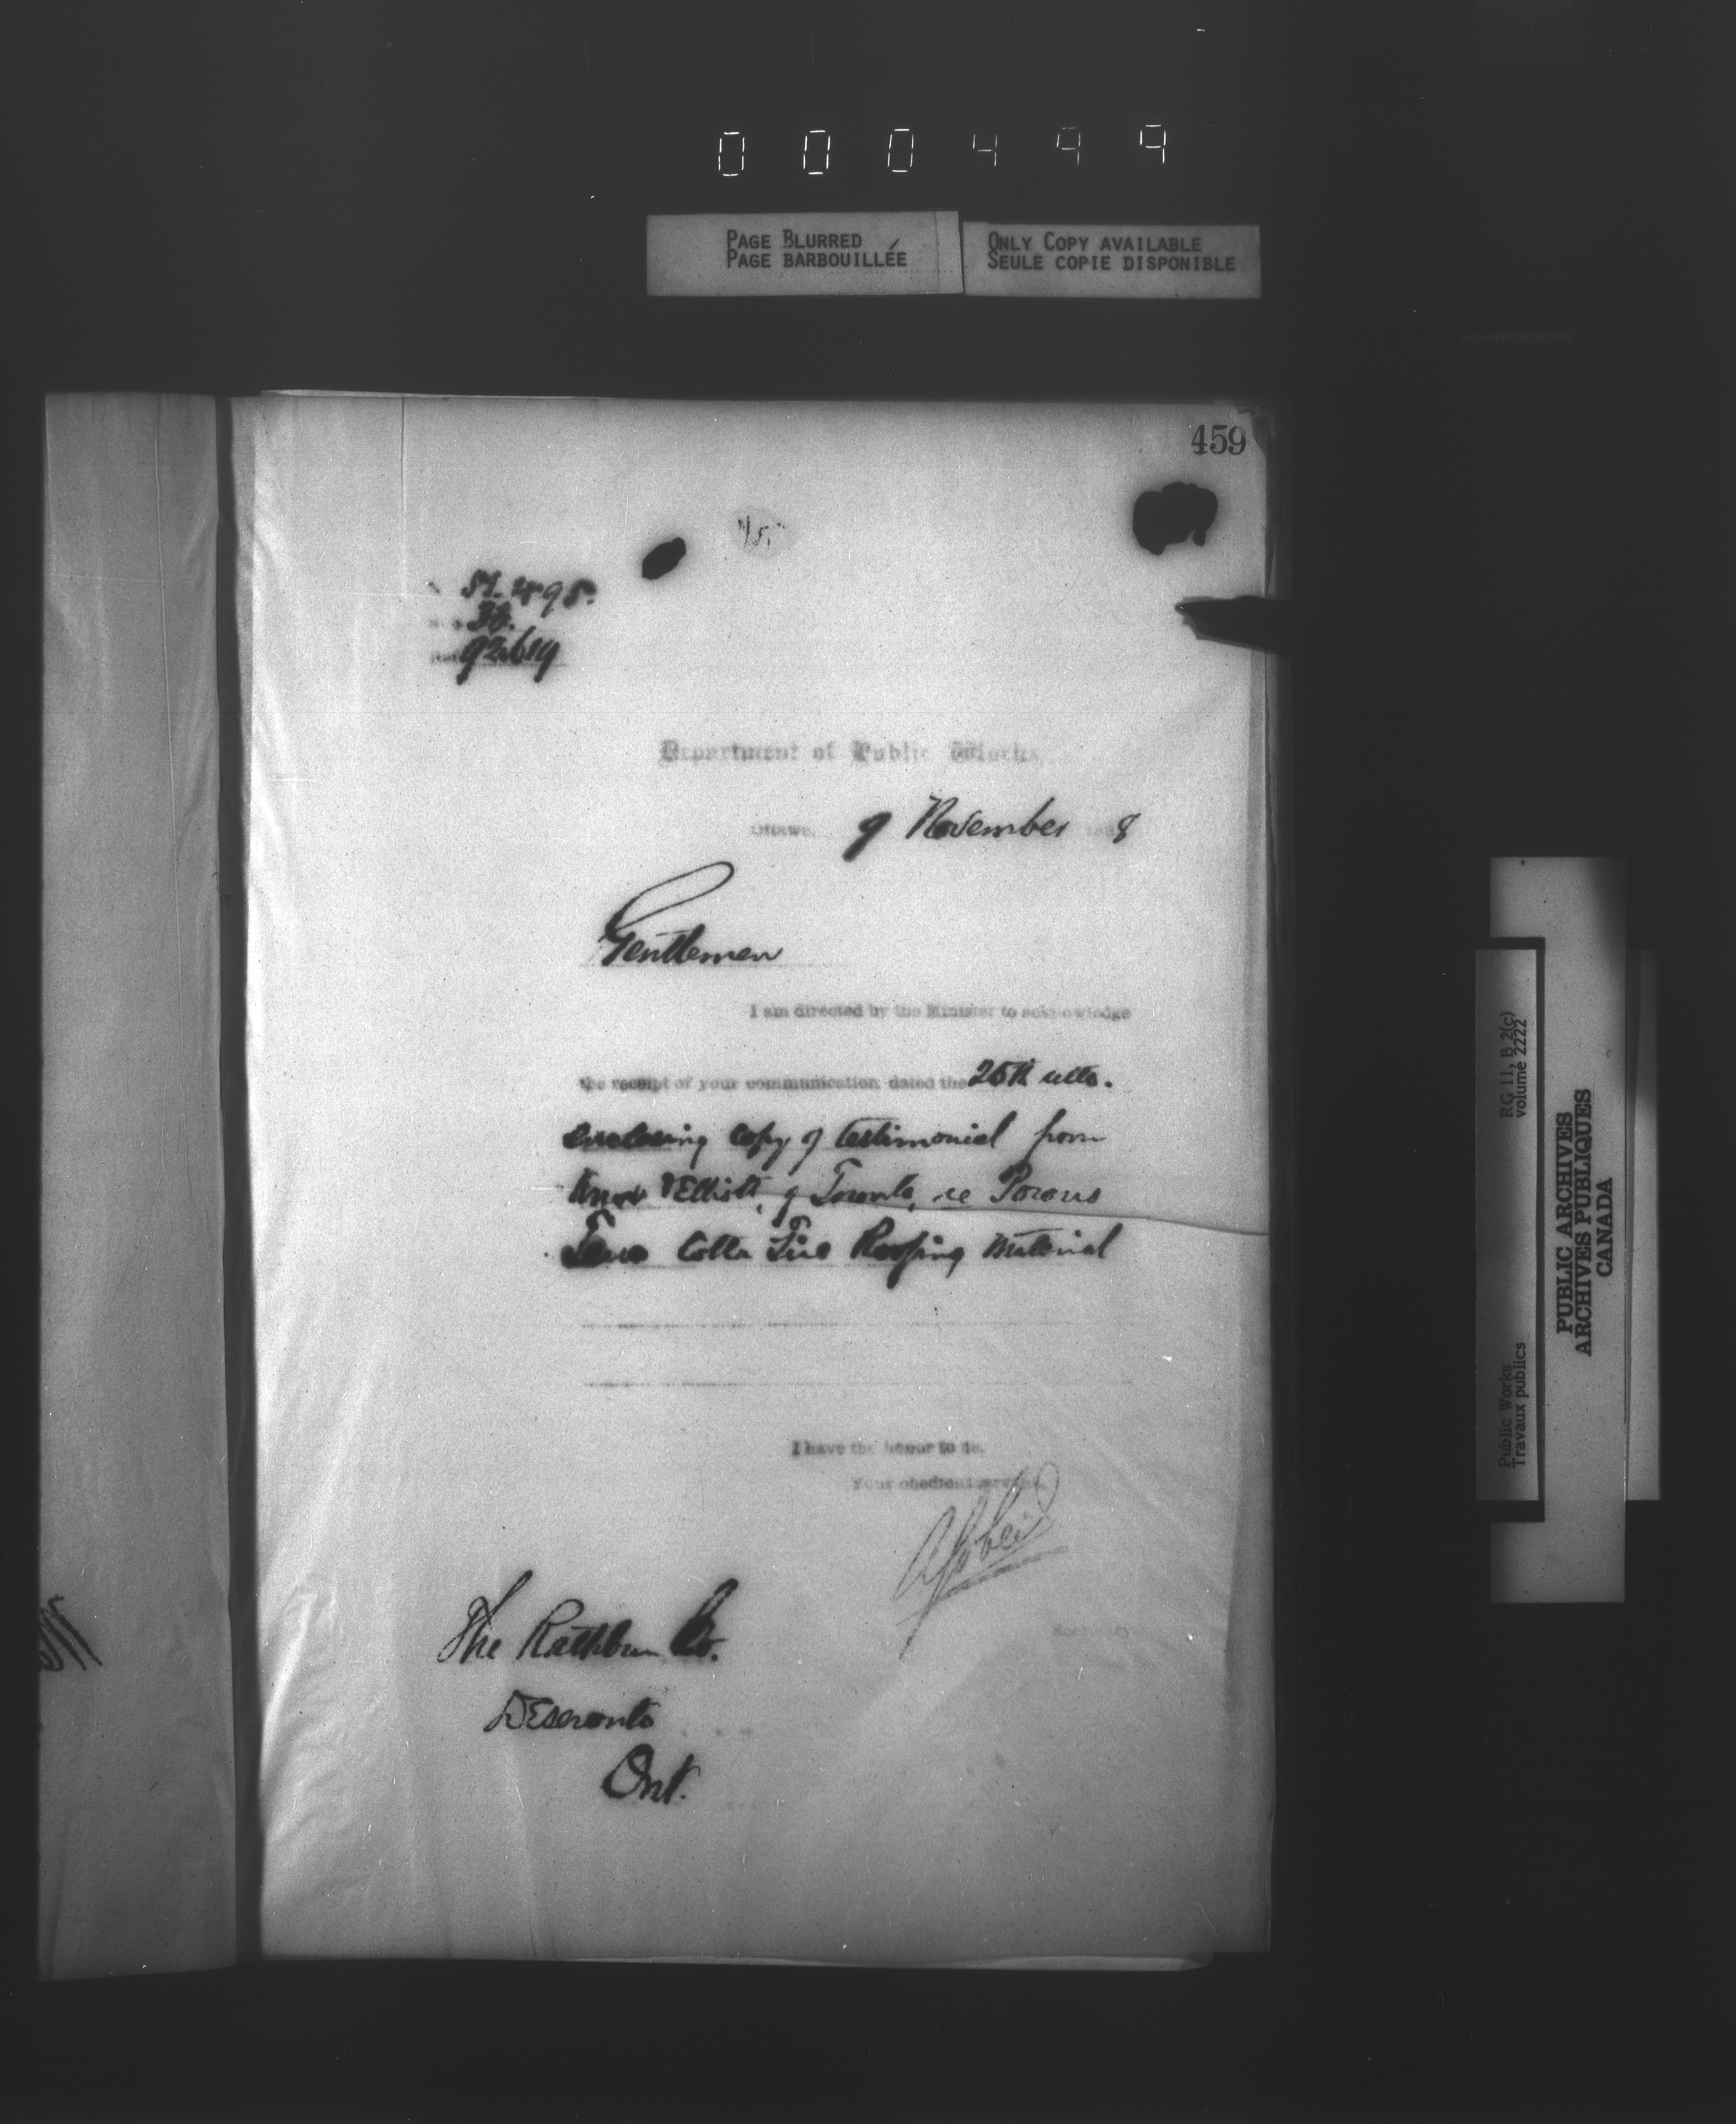 000499
PAGE BLURRED
PAGE BARBOUILLÉE
ONLY COPY AVAILABLE
SEULE COPIE DISPONIBLE
459
Department of Public Works,
Ottawa, 9 November 1888
Gentlemen
I am directed by the Minister to acknowledge
the receipt of your communication dated the 25th ulto.
enclosing copy of testimonial from
Knox & Elliott, of Toronto, re Porous
Terra Cotta Fire Roofing Material
I have the honor to be,
Your obedient servant,
Secretary
The Rathbun Co.
Deseronto
Ont.
Public Works
Travaux publics
RG 11, B 2(c)
volume 2222
PUBLIC ARCHIVES
ARCHIVES PUBLIQUES
CANADA